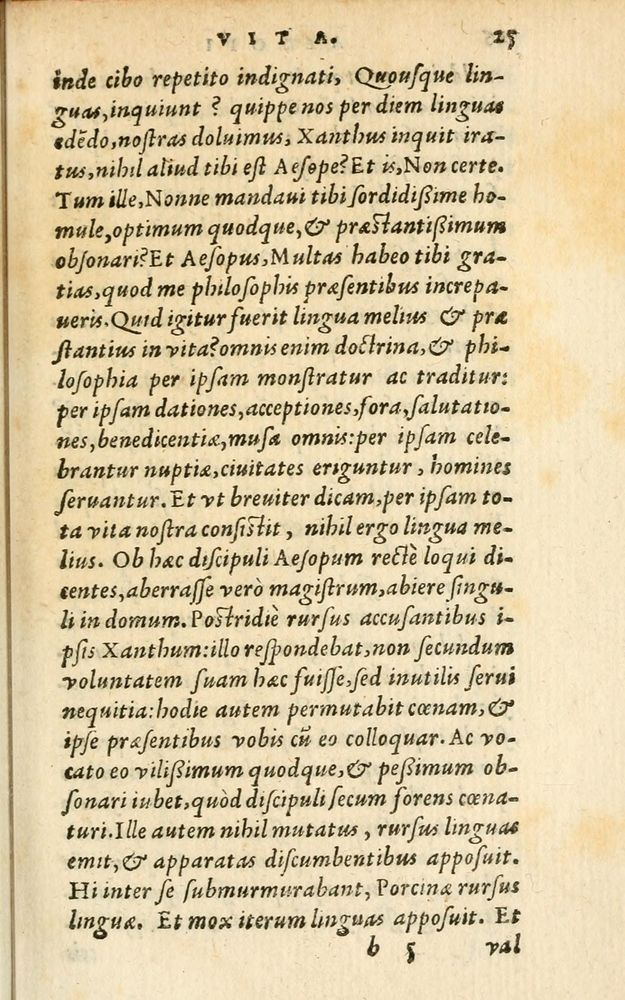 VITA. 25
inde cibo repetito indignati, Quouſque lin-
guas, inquiunt ? quippe nos per diem linguas
edẽdo, noſtras doluimus, Xanthus inquit ira-
tus, nihil aliud tibi eſt Aeſope? Et is, Non certe.
Tum ille, Nonne mandaui tibi ſordidißime ho-
mule, optimum quodque, & præſtantißimum
obſonari? Et Aeſopus, Multas habeo tibi gra-
tias, quod me philoſophis præſentibus increpa-
ueris. Quid igitur fuerit lingua melius & præ
ſtantius in vita? omnis enim doctrina, & phi-
loſophia per ipſam monſtratur ac traditur:
per ipſam dationes, acceptiones, fora, ſalutatio-
nes, benedicentiæ, muſa omnis: per ipſam cele-
brantur nuptiæ, ciuitates eriguntur, homines
ſeruantur. Et vt breuiter dicam, per ipſam to-
ta vita noſtra conſiſtit, nihil ergo lingua me-
lius. Ob hæc diſcipuli Aeſopum rectè loqui di-
centes, aberraſſe verò magiſtrum, abiere ſingu-
li in domum. Poſtridiè rurſus accuſantibus i-
pſis Xanthum: illo reſpondebat, non ſecundum
voluntatem ſuam hæc fuiſſe, ſed inutilis ſerui
nequitia: hodie autem permutabit cœnam, &
ipſe præſentibus vobis cũ eo colloquar. Ac vo-
cato eo vilißimum quodque, & peßimum ob-
ſonari iubet, quòd diſcipuli ſecum forens cœna-
turi. Ille autem nihil mutatus, rurſus linguas
emit, & apparatas diſcumbentibus appoſuit.
Hi inter ſe submurmurabant, Porcinæ rurſus
linguæ. Et mox iterum linguas appoſuit. Et
b 5 val